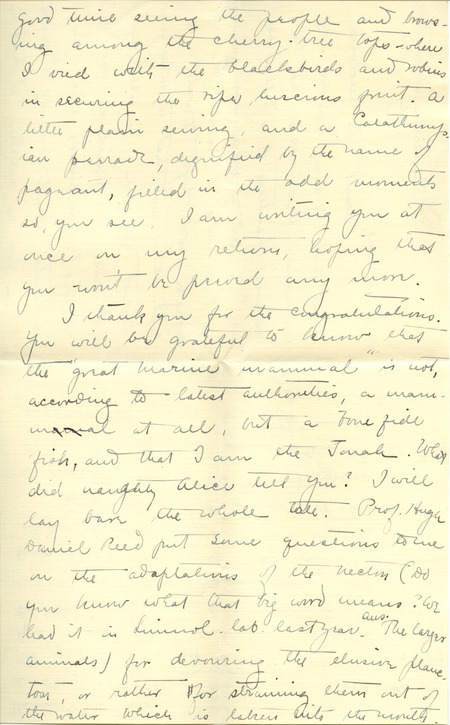 good time seeing the people and brows-
ing among the cherry-tree tops - where
I vied with the blackbirds and robins
in securing the ripe luscious fruit. A
little plain sewing, and a Calathump-
ian parade, dignified by the name of
pageant, filled in the odd moments
so, you see, I am writing you at
once on my return, hoping that
you won't be peeved any more.
I thank you for the congratulations.
You will be grateful to know that
the "great marine mammal" is not,
according to latest authorities, a mam-
mal at all, but a bone fide
fish, and that I am the Jonah. What
did naughty Alice tell you? I will
lay bare the whole tale. Prof. Hugh
Daniel Reed put some questions to me
on the adaptations of the necton (Do
you know what that big word means? We
had it in Limnol. lab. last year. Ans. The larger
animals) for devouring the elusive plank-
ton, or rather for straining them out of
the water which is taken into the mouth.